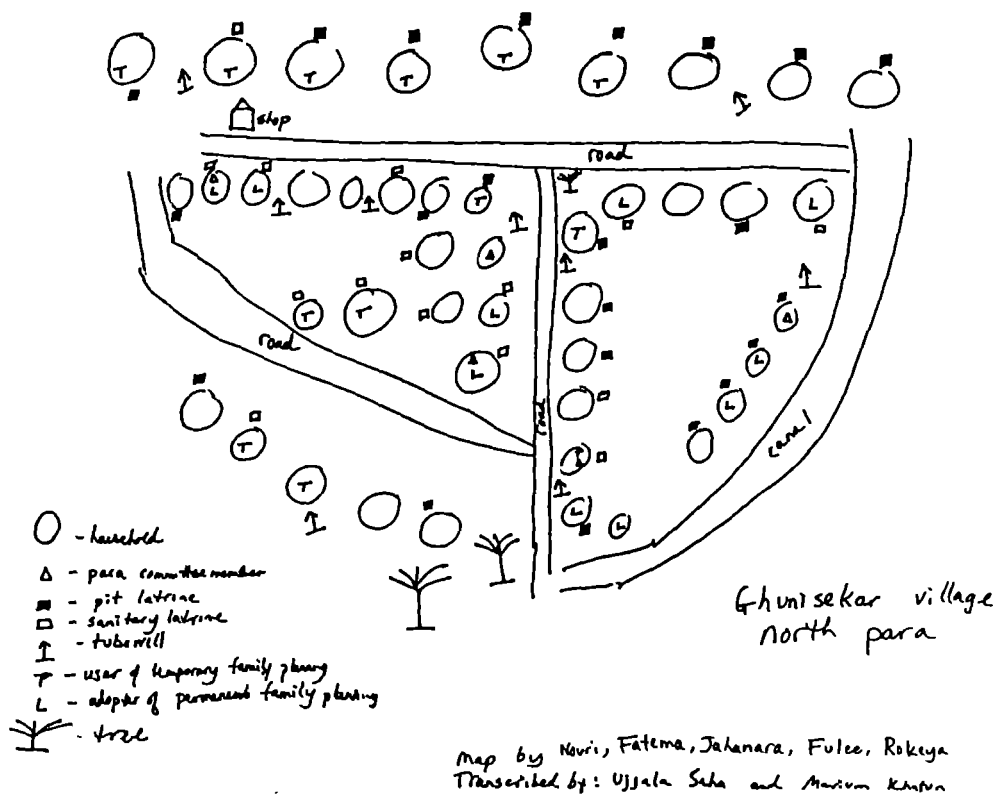 shop
road
road
road
canal
- household
- para committee member
- pit latrine
- sanitary latrine
- tubewell
T - user of temporary family planning
L - adopter of permanent family planning
- tree
Ghunisekar village
north para
Map by Nouri, Fatema, Jahanara, Fulee, Rokeya
Transcribed by: Ujjala Saha and Marium Khatun